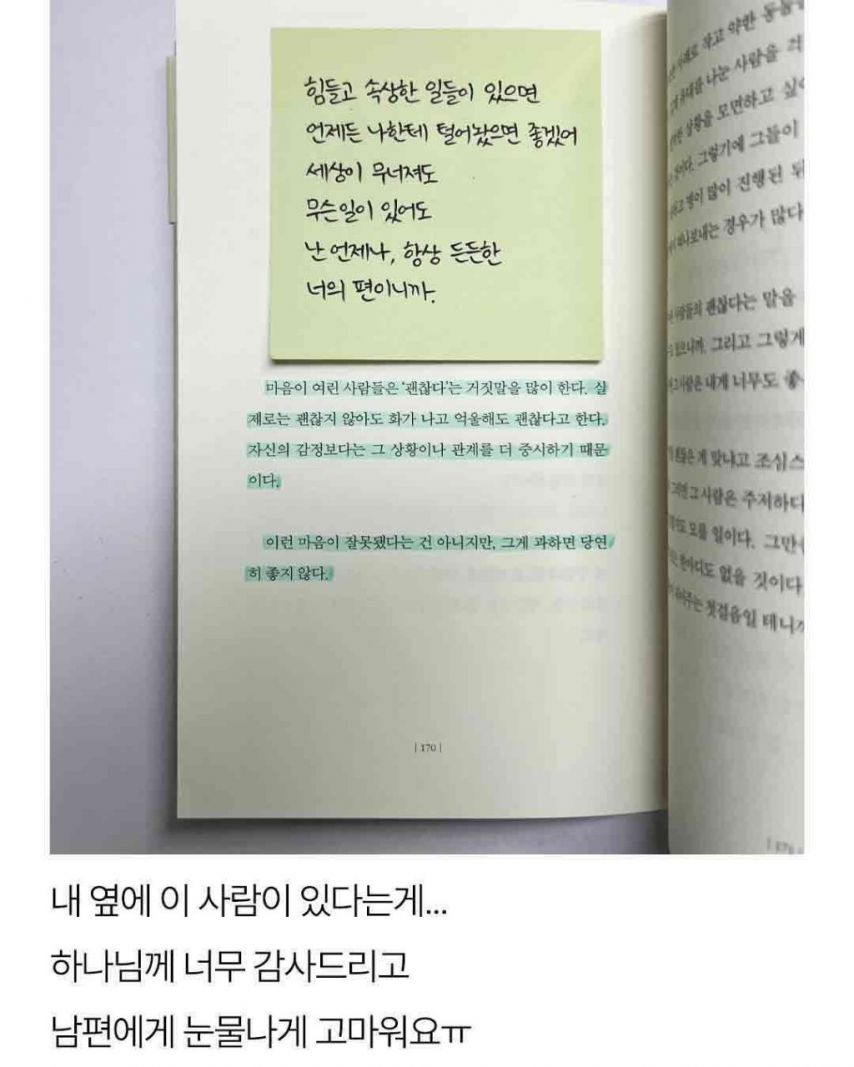 힘들고 속상한 일들이 있으면
언제든 나한테 털어놨으면 좋겠어
세상이 무너져도
무슨일이 있어도
난 언제나, 항상 든든한
너의 편이니까.
마음이 여린 사람들은 '괜찮다'는 거짓말을 많이 한다. 실
제로는 괜찮지 않아도 화가 나고 억울해도 괜찮다고 한다.
자신의 감정보다는 그 상황이나 관계를 더 중시하기 때문
이다.
이런 마음이 잘못됐다는 건 아니지만, 그게 과하면 당연
히 좋지 않다.
| 170 |
작고 약한 동물
나눈 사람을
상황을 모면하고 싶
그렇기에 그들이
많이 진행된 뒤
경우가 많다
사람들의 괜찮다는 말을
있으니까. 그리고 그렇게
사람은 내게 너무도 좋
맞냐고 조심스
그 사람은 주저하다
모를 일이다. 그만
한마디도 없을 것이다
첫걸음일 테니까
내 옆에 이 사람이 있다는게...
하나님께 너무 감사드리고
남편에게 눈물나게 고마워요ㅠ